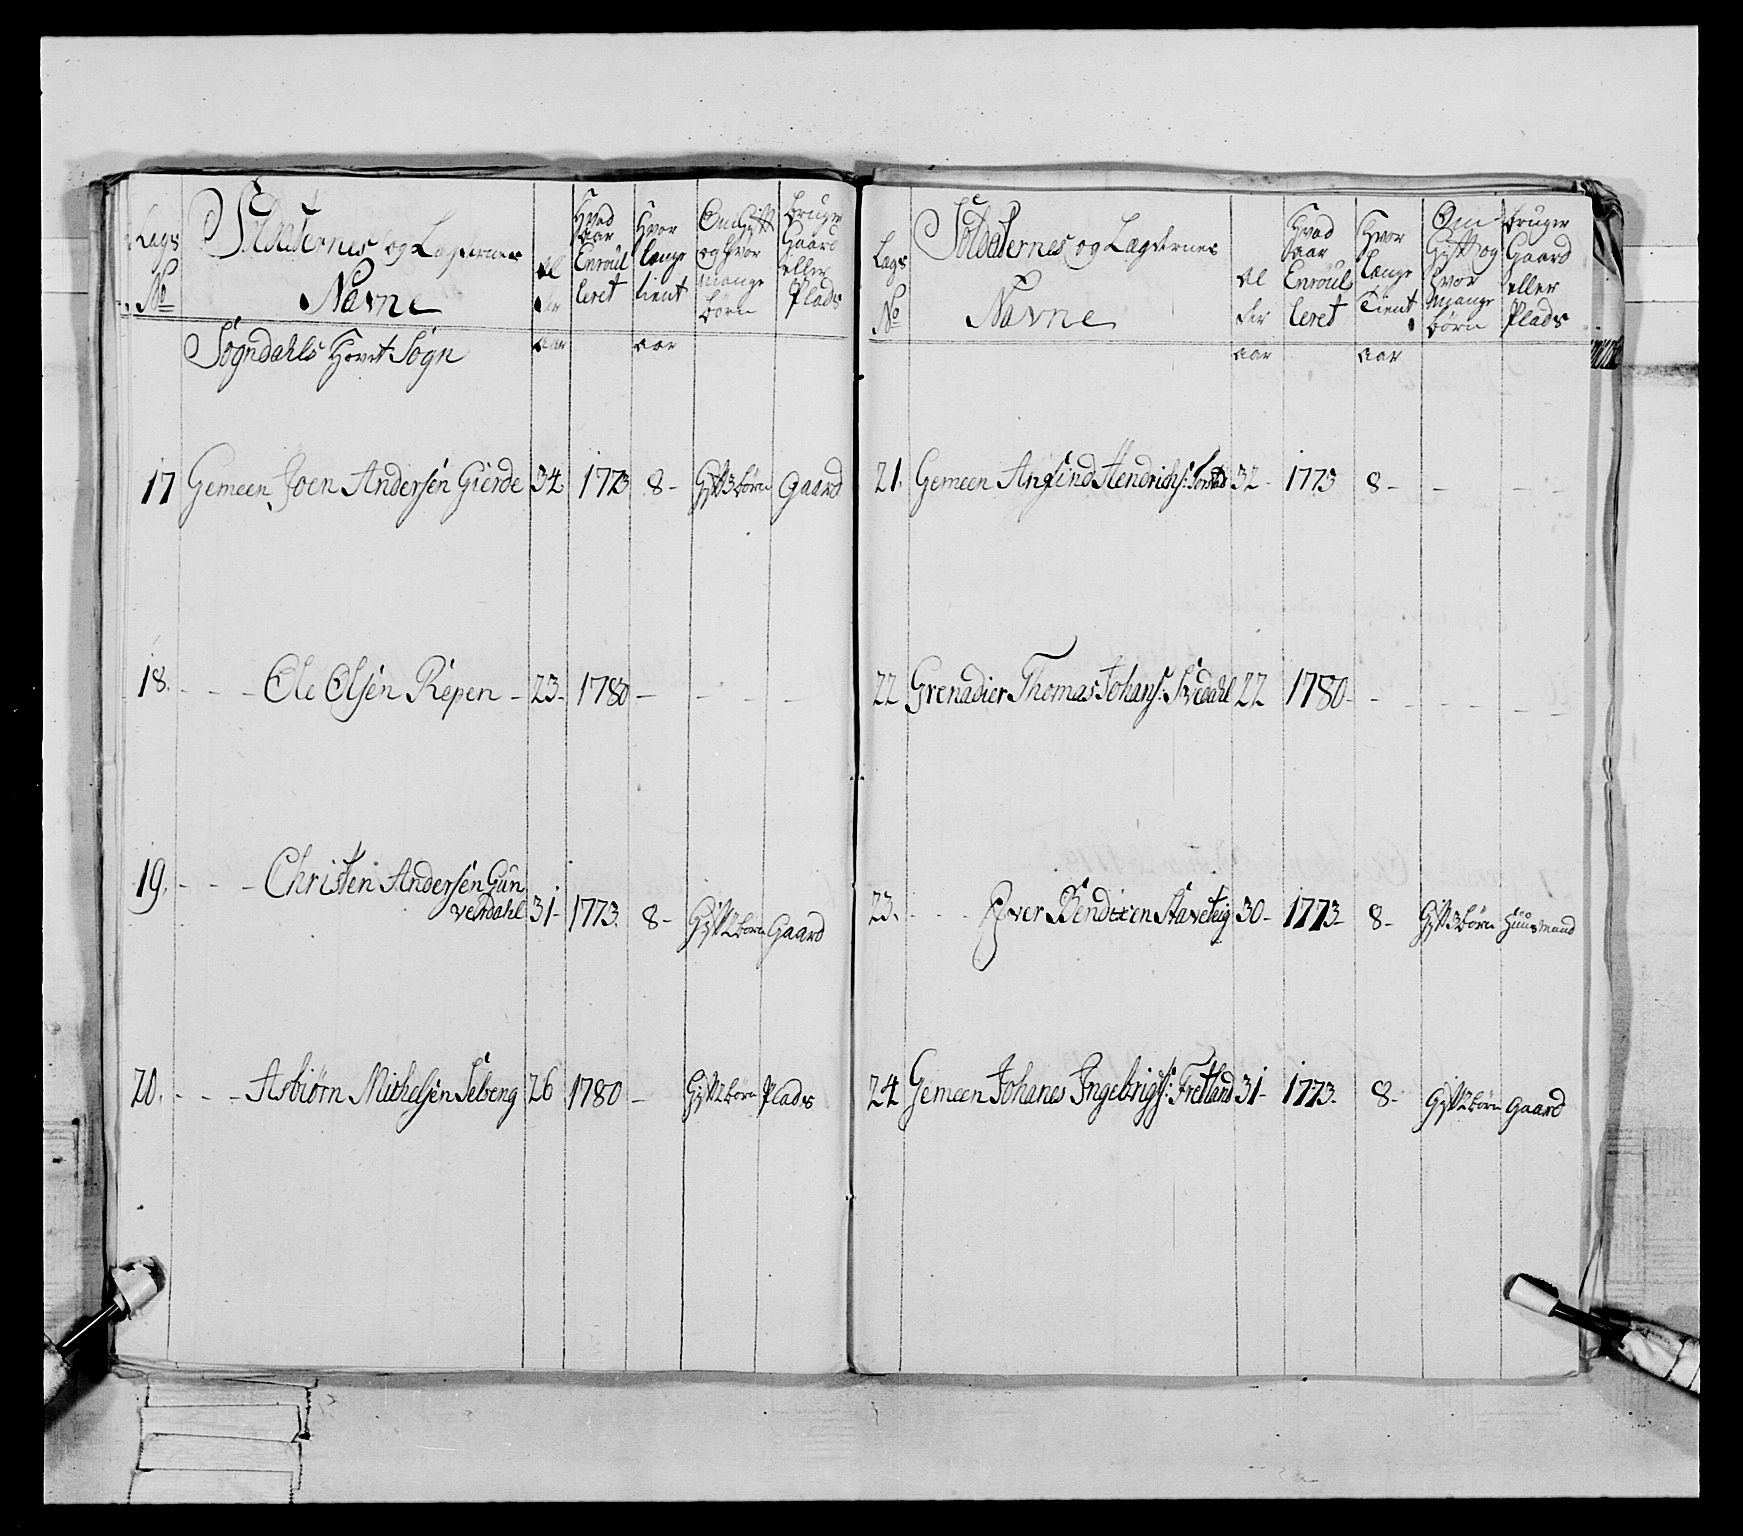 Lags No
Soldaternes og Lagdernes Navne
Al der
Hvad aar Enroulleret
Hvor længe tient
Om Gift og hvor mange börn
bruger Gaard eller Plads
Sogndahls Hovet Sogn
aar
aar
17 Gemeen Joen Andersen Gierde 34 1773 8 - Gift 3 börn Gaard
18. - - - Ole Olsen Repen - 23 - 1780 - - - -
19. - - - Christen Andersen Gun
verdahl 31 - 1773. 8 - Gift 2 börn Gaard
20. - - - Asbiörn Michelsen Selseng 26 1780 - Gift 2 börn Plads
Lags No
Soldaternes og Lægdernes Navne
Al der
Hvad aar Enroulleret
Hvor længe Tient
Om Gift og hvor mange börn
bruger Gaard eller Plads
aar
aar
21. Gemeen Anfind Hendrichs: 32 - 1773 8 - - - -
22 Grenadier Thomas Johans: Svedahl 22 1780 - - - - - - -
23. - - - Iver Bendixen Staveteig 30 - 1773 - 8 - Gift 3 börn Huusmand
24 Gemeen Johanes Ingebrigts: Fretland 31 - 1773 - 8 - Gift 2 börn Gaard